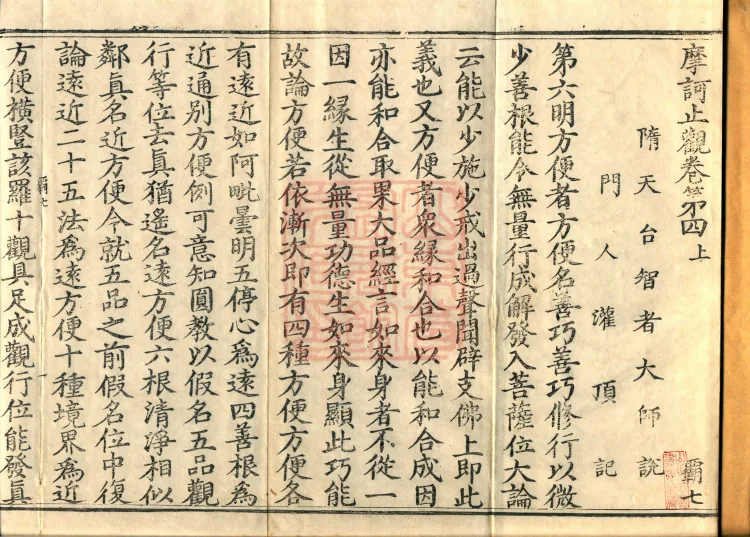 摩訶止觀卷第四上 覇七
隋天台智者大師說
門人灌頂記
第六明方便者方便名善巧善巧修行以微
少善根能令無量行成解發入菩薩位大論
云能以少施少戒出過聲聞辟支佛上即此
義也又方便者衆緣和合也以能和合成因
亦能和合取果大品經言如來身者不從一
因一緣生從無量功德生如來身顯此巧能
故論方便若依漸次即有四種方便方便各
有遠近如阿毗曇明五停心爲遠四善根爲
近通別方便例可意知圓教以假名五品觀
行等位去眞猶遙名遠方便六根清淨相似
鄰眞名近方便今就五品之前假名位中復
論遠近二十五法爲遠方便十種境界爲近
覇七 一
方便橫豎該羅十觀具足成觀行位能發眞